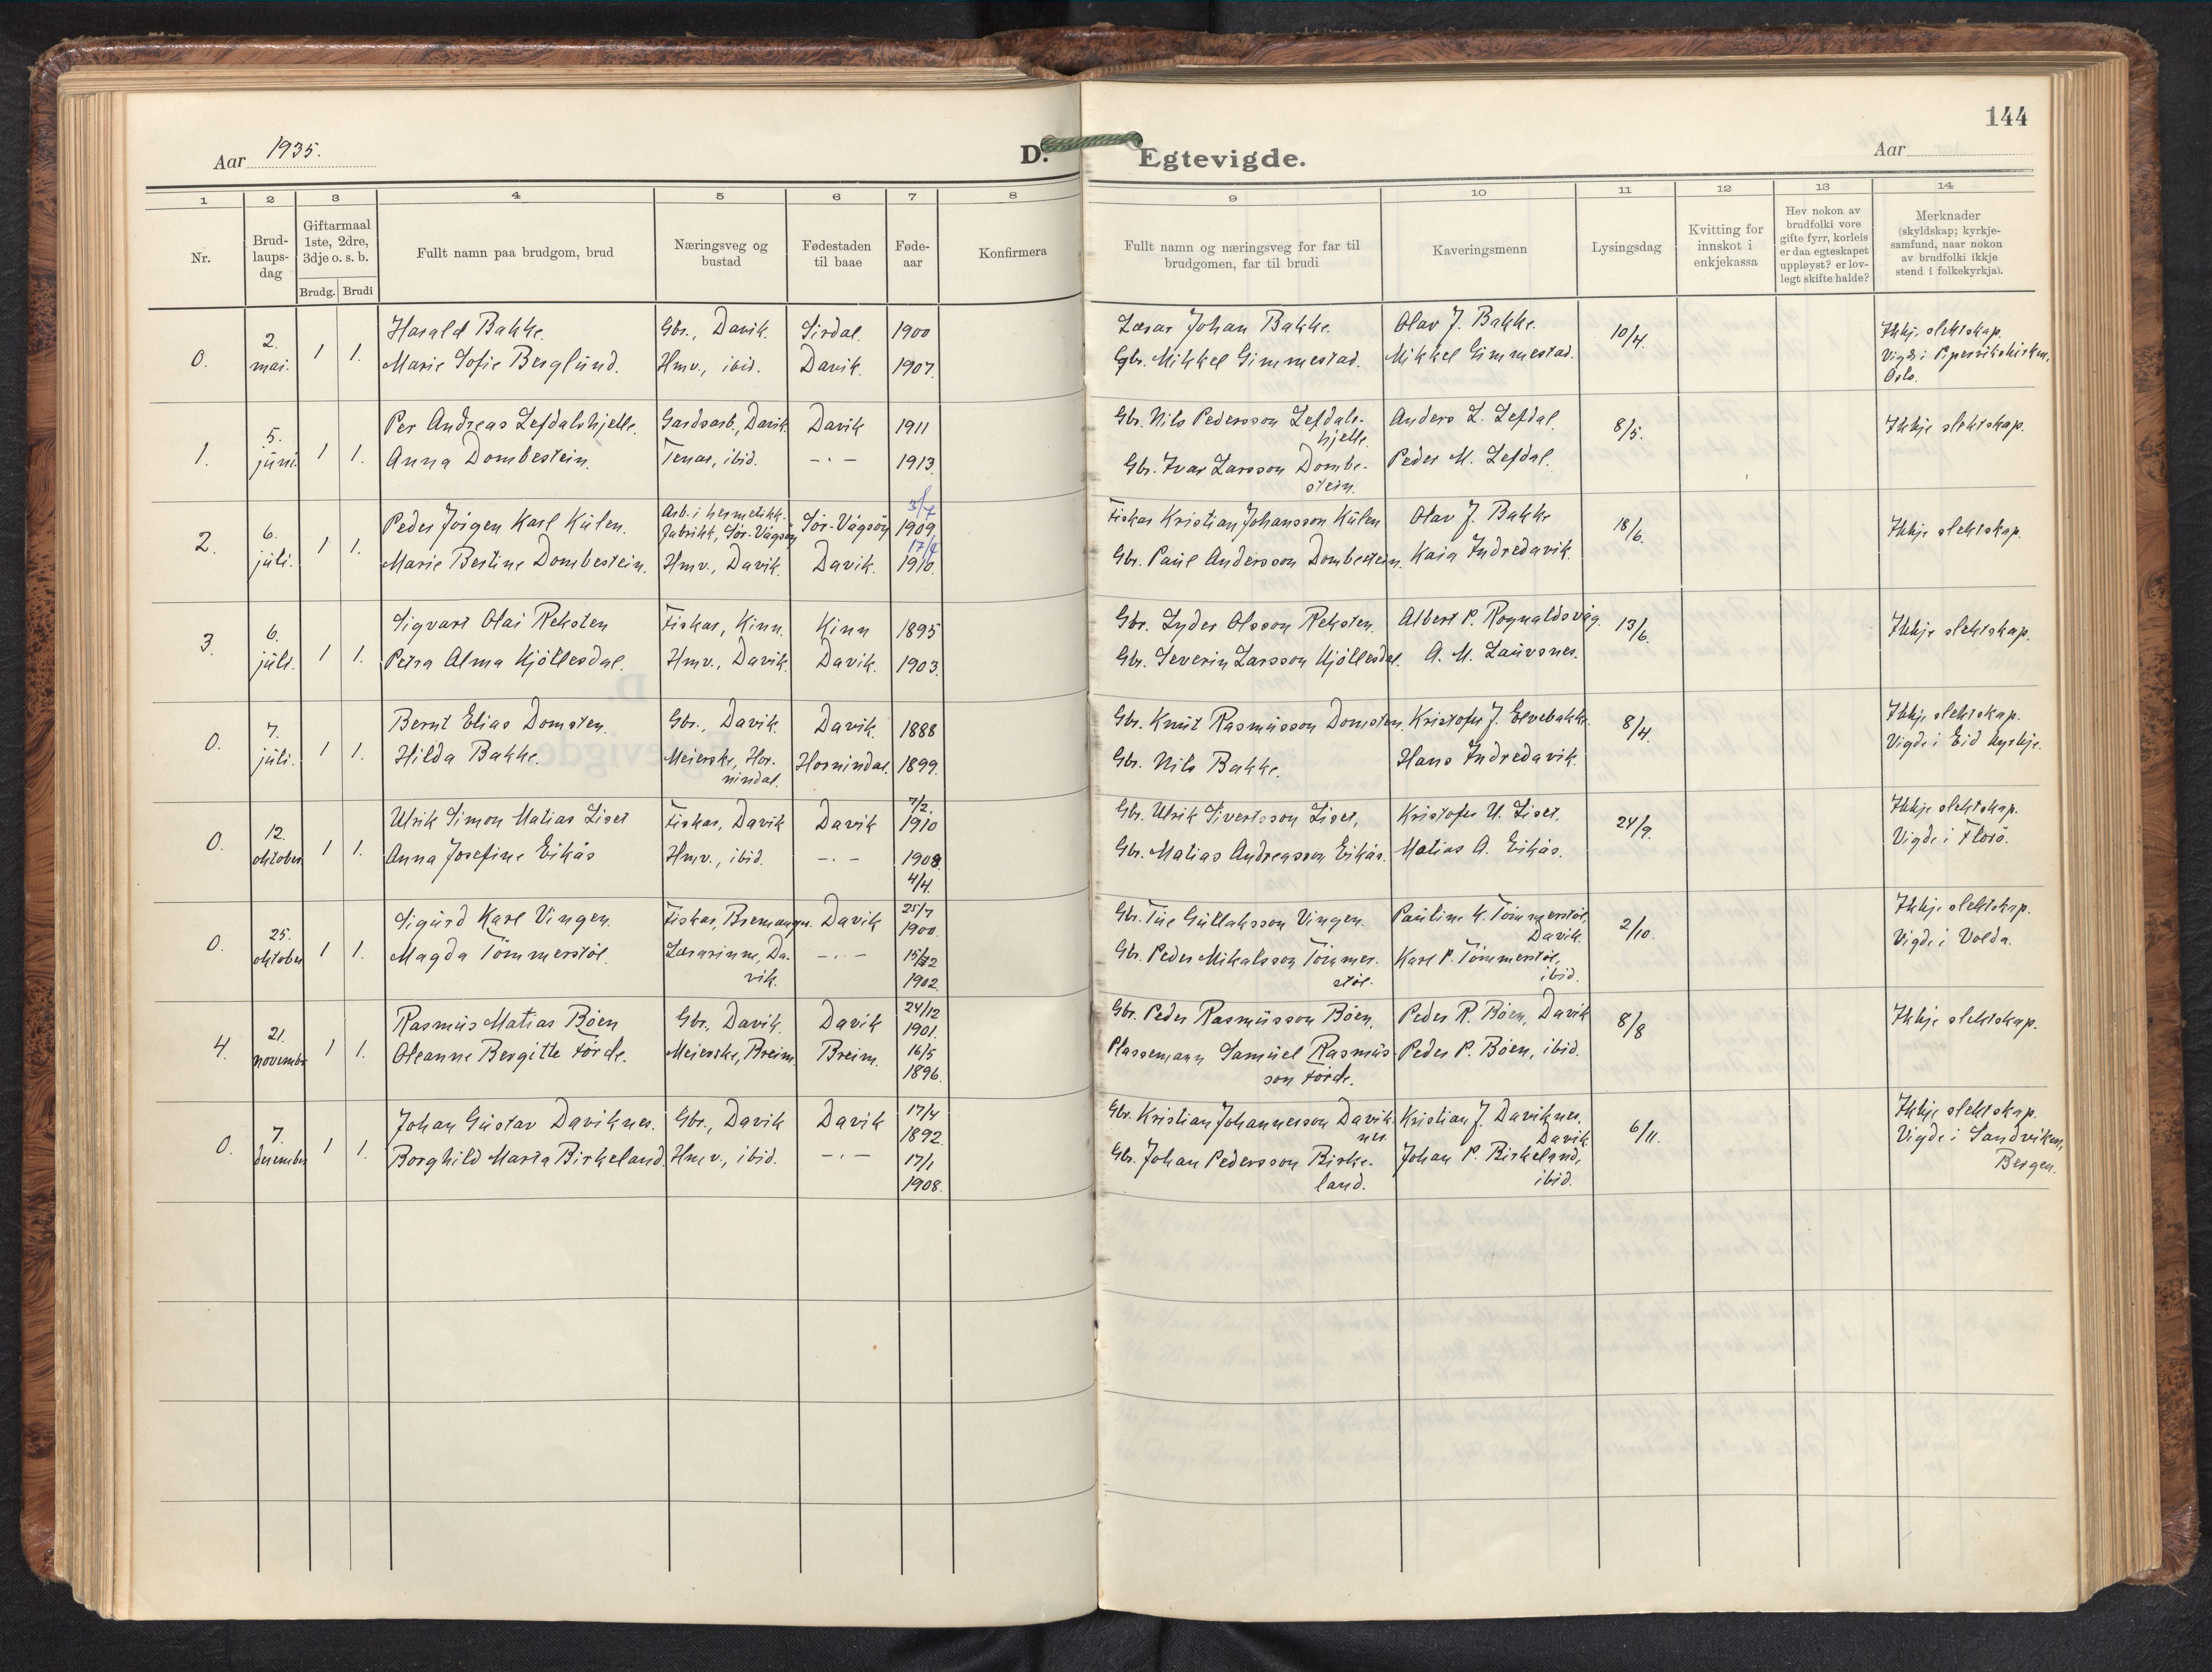 144
Aar 1935.
D. Egtevigde.
Aar
1 2 3 4 5 6 7 8 9 10 11 12 13 14
Nr.
Brud-
laups-
dag
Giftarmaal
1ste, 2dre,
3dje o. s. b.
Brudg. Brudi
Fullt namn paa brudgom, brud
Næringsveg og
bustad
Fødestaden
til baae
Føde-
aar
Konfirmera
Fullt namn og næringsveg for far til
brudgomen, far til brudi
Kaveringsmenn
Lysingsdag
Kvitting for
innskot i
enkjekassa
Hev nokon av
brudfolki vore
gifte fyrr, korleis
er daa egteskapet
uppløyst? er lov-
legt skifte halde?
Merknader
(skyldskap; kyrkje-
samfund, naar nokon
av brudfolki ikkje
stend i folkekyrkja).
0. 2. mai. 1 1.
Harald Bakke. Gbr., Davik. Sirdal. 1900 Lærar Johan Bakke. Olav J. Bakke. 10/4. Ikkje slektskap.
Marie Sofie Berglund. Hmv., ibid. Davik. 1907. Gbr. Mikkel Gimmestad. Mikkel Gimmestad. Vigde i
Oslo.
1. 5. juni. 1 1.
Per Andreas Lefdalshjelle. Gardsarb., Davik. Davik 1911 Gbr. Nils Pedersson Lefdals- Anders L. Lefdal. 8/5. Ikkje slektskap.
hjelle.
Anna Dombestein. Tenar, ibid. -·- 1913. Gbr. Ivar Larsson Dombe- Peder M. Lefdal.
stein.
2. 6. juli. 1 1.
Arb. i hermetikk- 3/7
Peder Jörgen Karl Kulen. fabrikk, Sör-Vågsöy Sör-Vågsöy 1909. Fiskar Kristian Johansson Kulen Olav J. Bakke 18/6. Ikkje slektskap.
17/2
Marie Bertine Dombestein. Hmv., Davik. Davik. 1910. Gbr. Paul Andersson Dombestein. Kaia Indredavik.
3. 6. juli. 1 1.
Sigvart Olai Reksten Fiskar, Kinn. Kinn 1895 Gbr. Lyder Olsson Reksten. Albert P. Rognaldsvåg. 13/6. Ikkje slektskap.
Petra Alma Kjöllesdal. Hmv., Davik. Davik. 1903. Gbr. Severin Larsson Kjöllesdal. A. M. Lauvsnes.
0. 7. juli. 1 1.
Bernt Elias Domsten. Gbr., Davik. Davik. 1888 Gbr. Knut Rasmusson Domsten. Kristofer J. Elvebakke. 8/4. Ikkje slektskap.
Hilda Bakke. Meierske, Hor- Hornindal. 1899. Gbr. Nils Bakke. Hans Indredavik. Vigde i Eid kyrkje.
nindal.
0. 12. oktober 1 1.
7/2.
Ulrik Simon Matias Liset Fiskar, Davik Davik 1910 Gbr. Ulrik Sivertsson Liset, Kristofer U. Liset. 24/9. Ikkje slektskap.
Anna Josefine Eikås Hmv., ibid. -·- 1908. Gbr. Matias Andreasson Eikås. Matias A. Eikås. Vigde i Florö.
4/4.
0. 25. oktober 1 1.
25/7
Sigurd Karl Vingen. Fiskar, Bremanger. Davik 1900. Gbr. Tue Gullaksson Vingen. Pauline K. Tömmerstöl, 2/10. Ikkje slektskap.
Davik.
Magda Tömmerstöl. Lærarinne, Da- -·- Gbr. Peder Mikalsson Tömmer- Karl P. Tömmerstöl, Vigde i Volda.
vik. 1902. stöl. ibid.
4. 21. november 1 1.
24/12
Rasmus Matias Böen Gbr., Davik. Davik 1901. Gbr. Peder Rasmusson Böen, Peder R. Böen, Davik 8/8 Ikkje slektskap.
16/5
Oleanne Bergitte Förde. Meierske, Breim. Breim. 1896. Plassemann Samuel Rasmus- Peder P. Böen, ibid.
son Förde.
0. 7. desember 1 1.
17/4
Johan Gustav Daviknes. Gbr., Davik Davik 1892. Gbr. Kristian Johannesson Davik- Kristian J. Daviknes, 6/11. Ikkje slektskap.
nes. Davik
17/1
Borghild Marta Birkeland. Hmv., ibid. -·- 1908. Gbr. Johan Pedersson Birke- Johan P. Birkeland, Vigde i Sandviken,
land. ibid. Bergen.